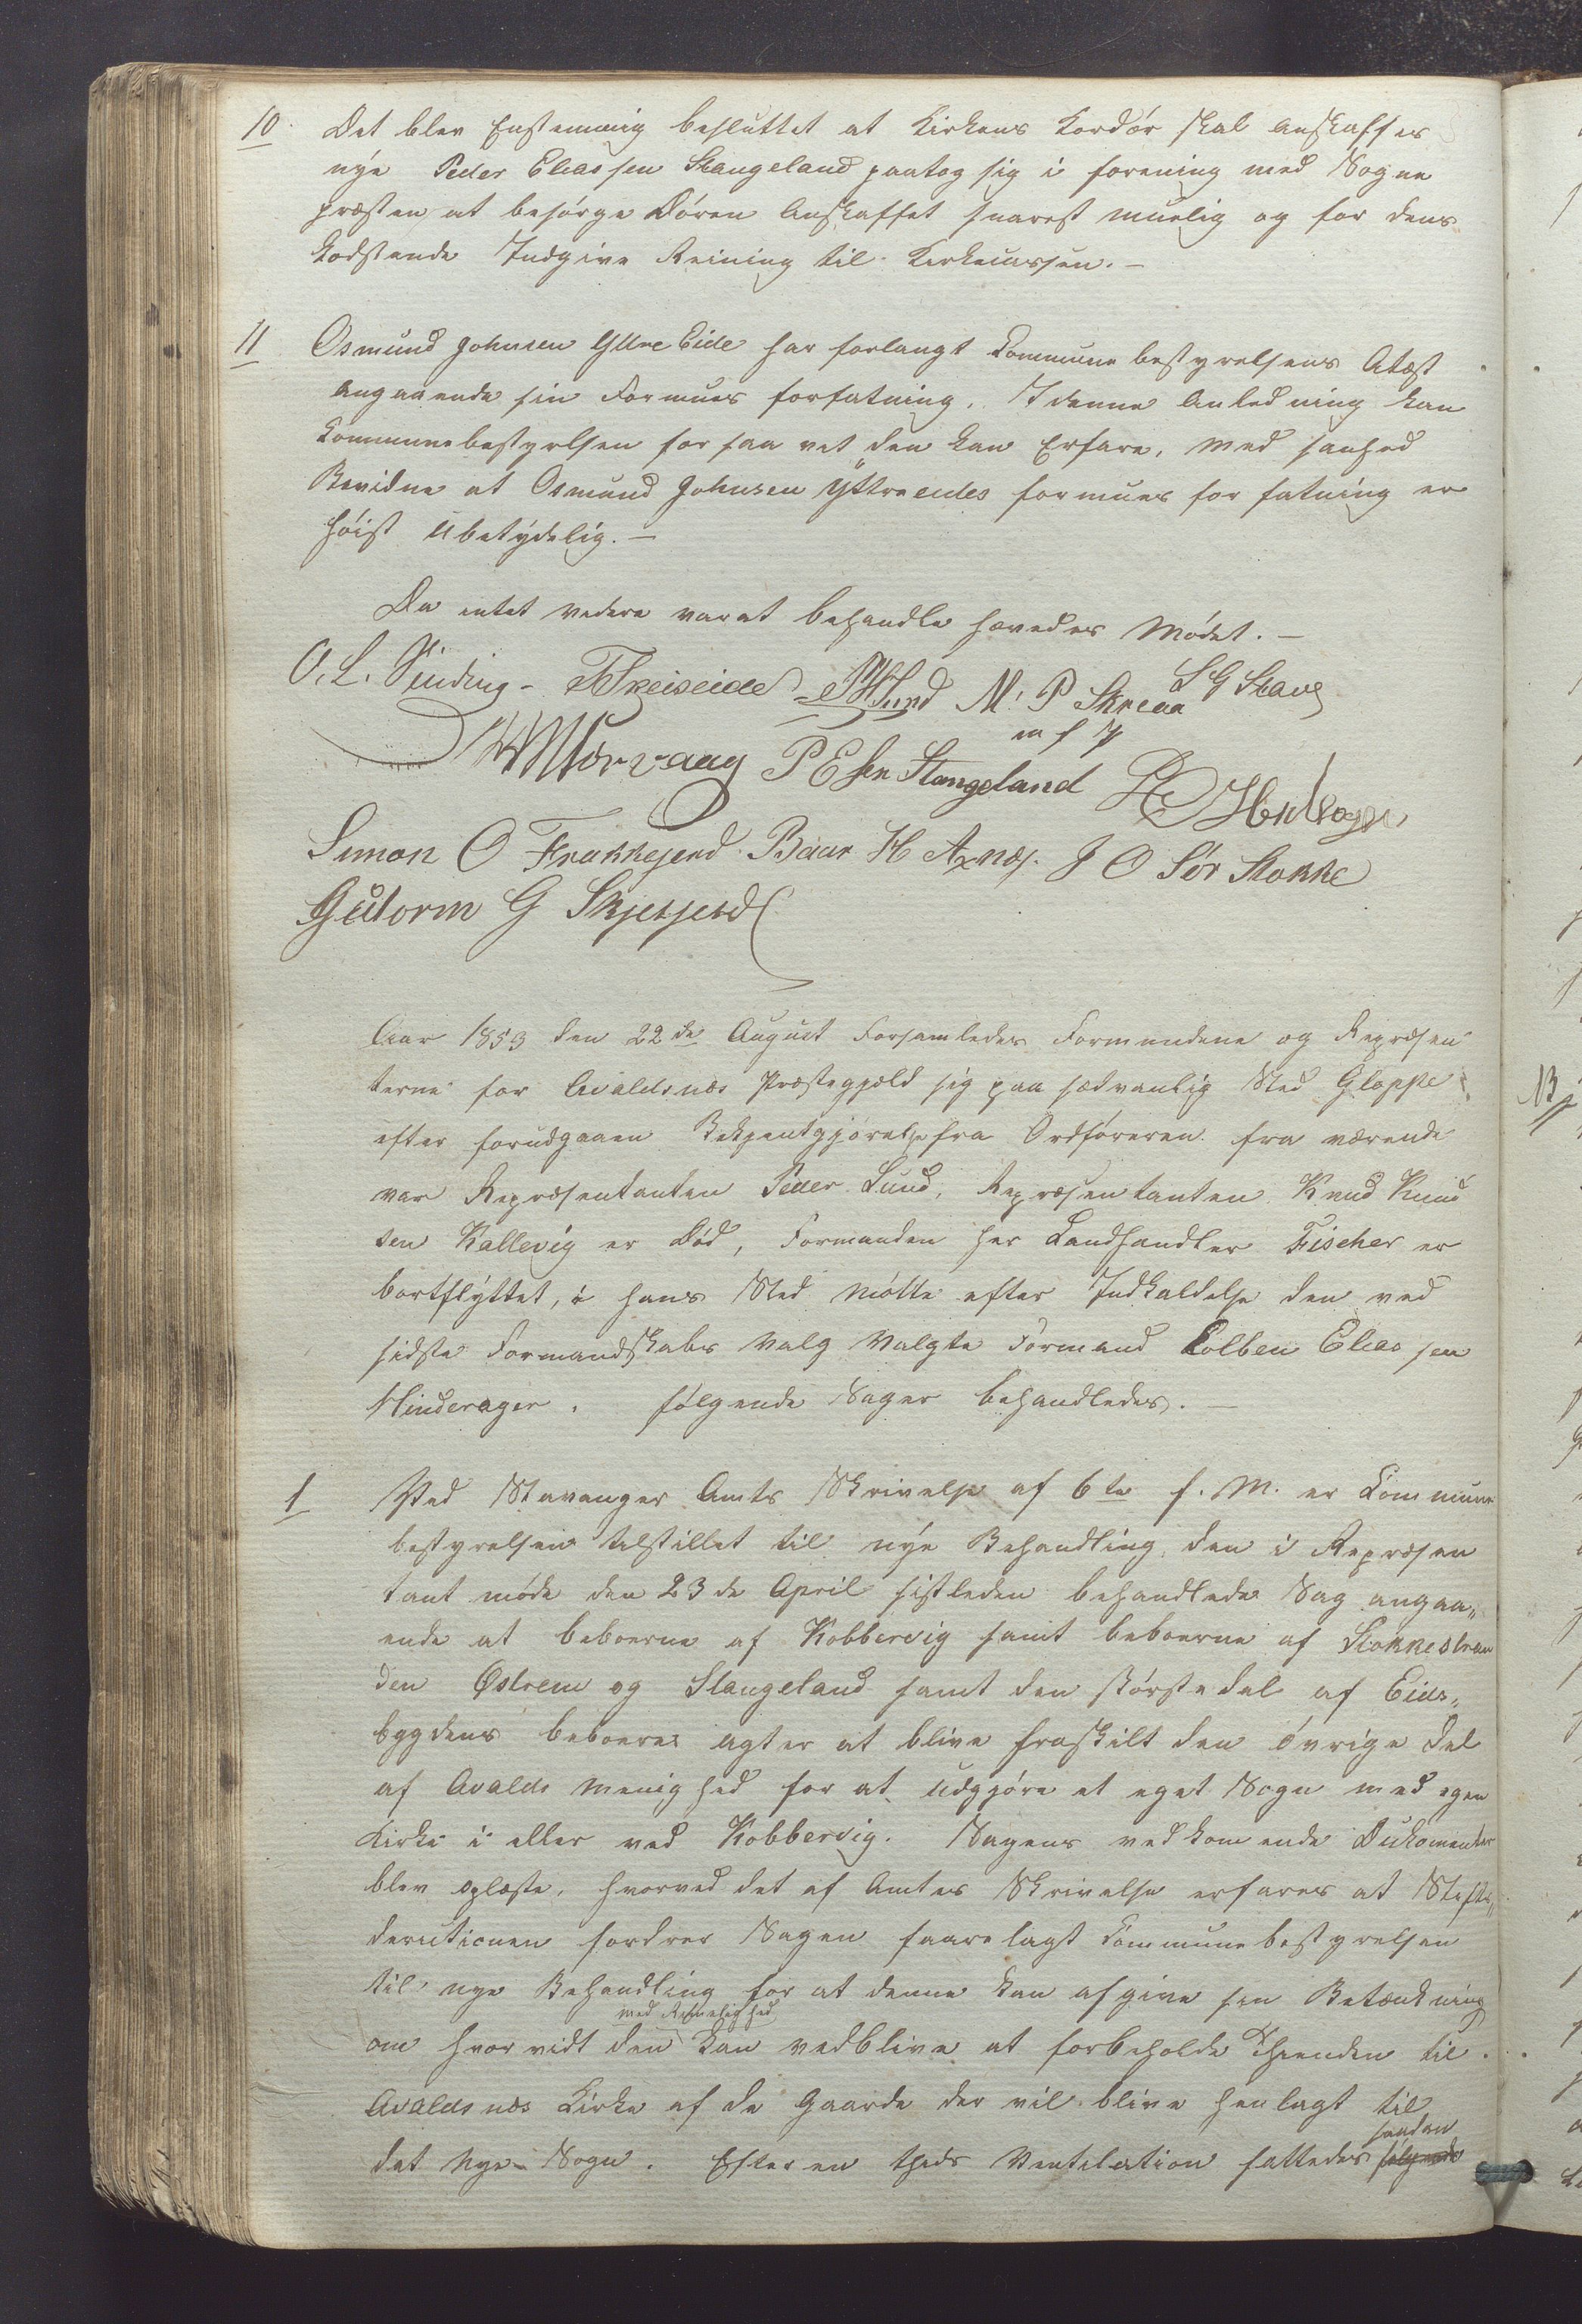 10. Det blev Enstemmig besluttet at Kirkens Kordør skal anskaffes
nýe Peder Eliassen Stangeland paatog sig i forening med Sogne
præsten at besørge Døren Anskaffet snarest muelig og for dens
Kodstende Indgive Reining til Kirkecassen. —
11 Osmund Johnsen Yttre Eide har forlangt Commune bestyrelsens Atæst
angaaende sin Formues forfatning. I denne Anledning kan
Communebestyrelsen for saa vet den kan Erfare, med sanhed
Bevidne at Osmund Johnsen Yttreeides formues forfatning er
høist ubetýdelig. —
Da intet vedere var at behandle hævedes Mødet. —
O. L. Sinding - Skeiseide PHLund M. P Skreaa L G Stave
m f P
Vorvaag P E sen Stangeland
Simon O Frakkesjerd Baar H Axnes. J O Sør Stokke
Gutorm G Skjersjerd
Aar 1853 den 22de August Forsamledes Formendene og Repræsen
terne for Avaldsnes Præstegjæld sig paa sædvanlig Sted Gloppe
efter forudgaaen Bekjentgjørelse fra Ordføreren. fra værende
var Repræsentanten Peder Lund, Repræsentanten Knud Knud
sen Kallevig er Død, Formanden her Landhandler Fischer er
bortflýttet, i hans Sted møtte efter Indkaldelse den ved
sidste Formandskabs Valg Valgte Formand Colben Elias sen
Hinderager. følgende Sager behandledes. —
1 Ved Stavanger Amts Skrivelse af 6te f. M. er Commune
bestyrelsen tilstillet til nýe Behandling den i Repræsen
tant møde den 23de April sistleden behandlede Sag angaa„
ende at beboerne af Kobbervig samt beboerne af Stokkestran
den Østrem og Stangeland samt den størstedel af Eids„
bygdens beboere agter at blive fraskilt den øvrige Del
af Avalds Menighed for at udgjøre et eget Sogn med egen
Kirke i eller ved Kobbervig. Sagens vedkomende Dukomenter
blev oplæste, hvorved det af Amtes Skrivelse erfares at Stifts„
deructionen fordrer Sagen faarelagt Communebestyrelsen
til nye Behandling for at denne kan afgive sin Betænkning
med Rimelighed
om hvorvidt den kan vedblive at forbeholde Thienden til
Avaldsnes Kirke af de Gaarde der vil blive henlagt til
det nye Sogn. Efter en theds Ventelation fattedes saadan
følgende